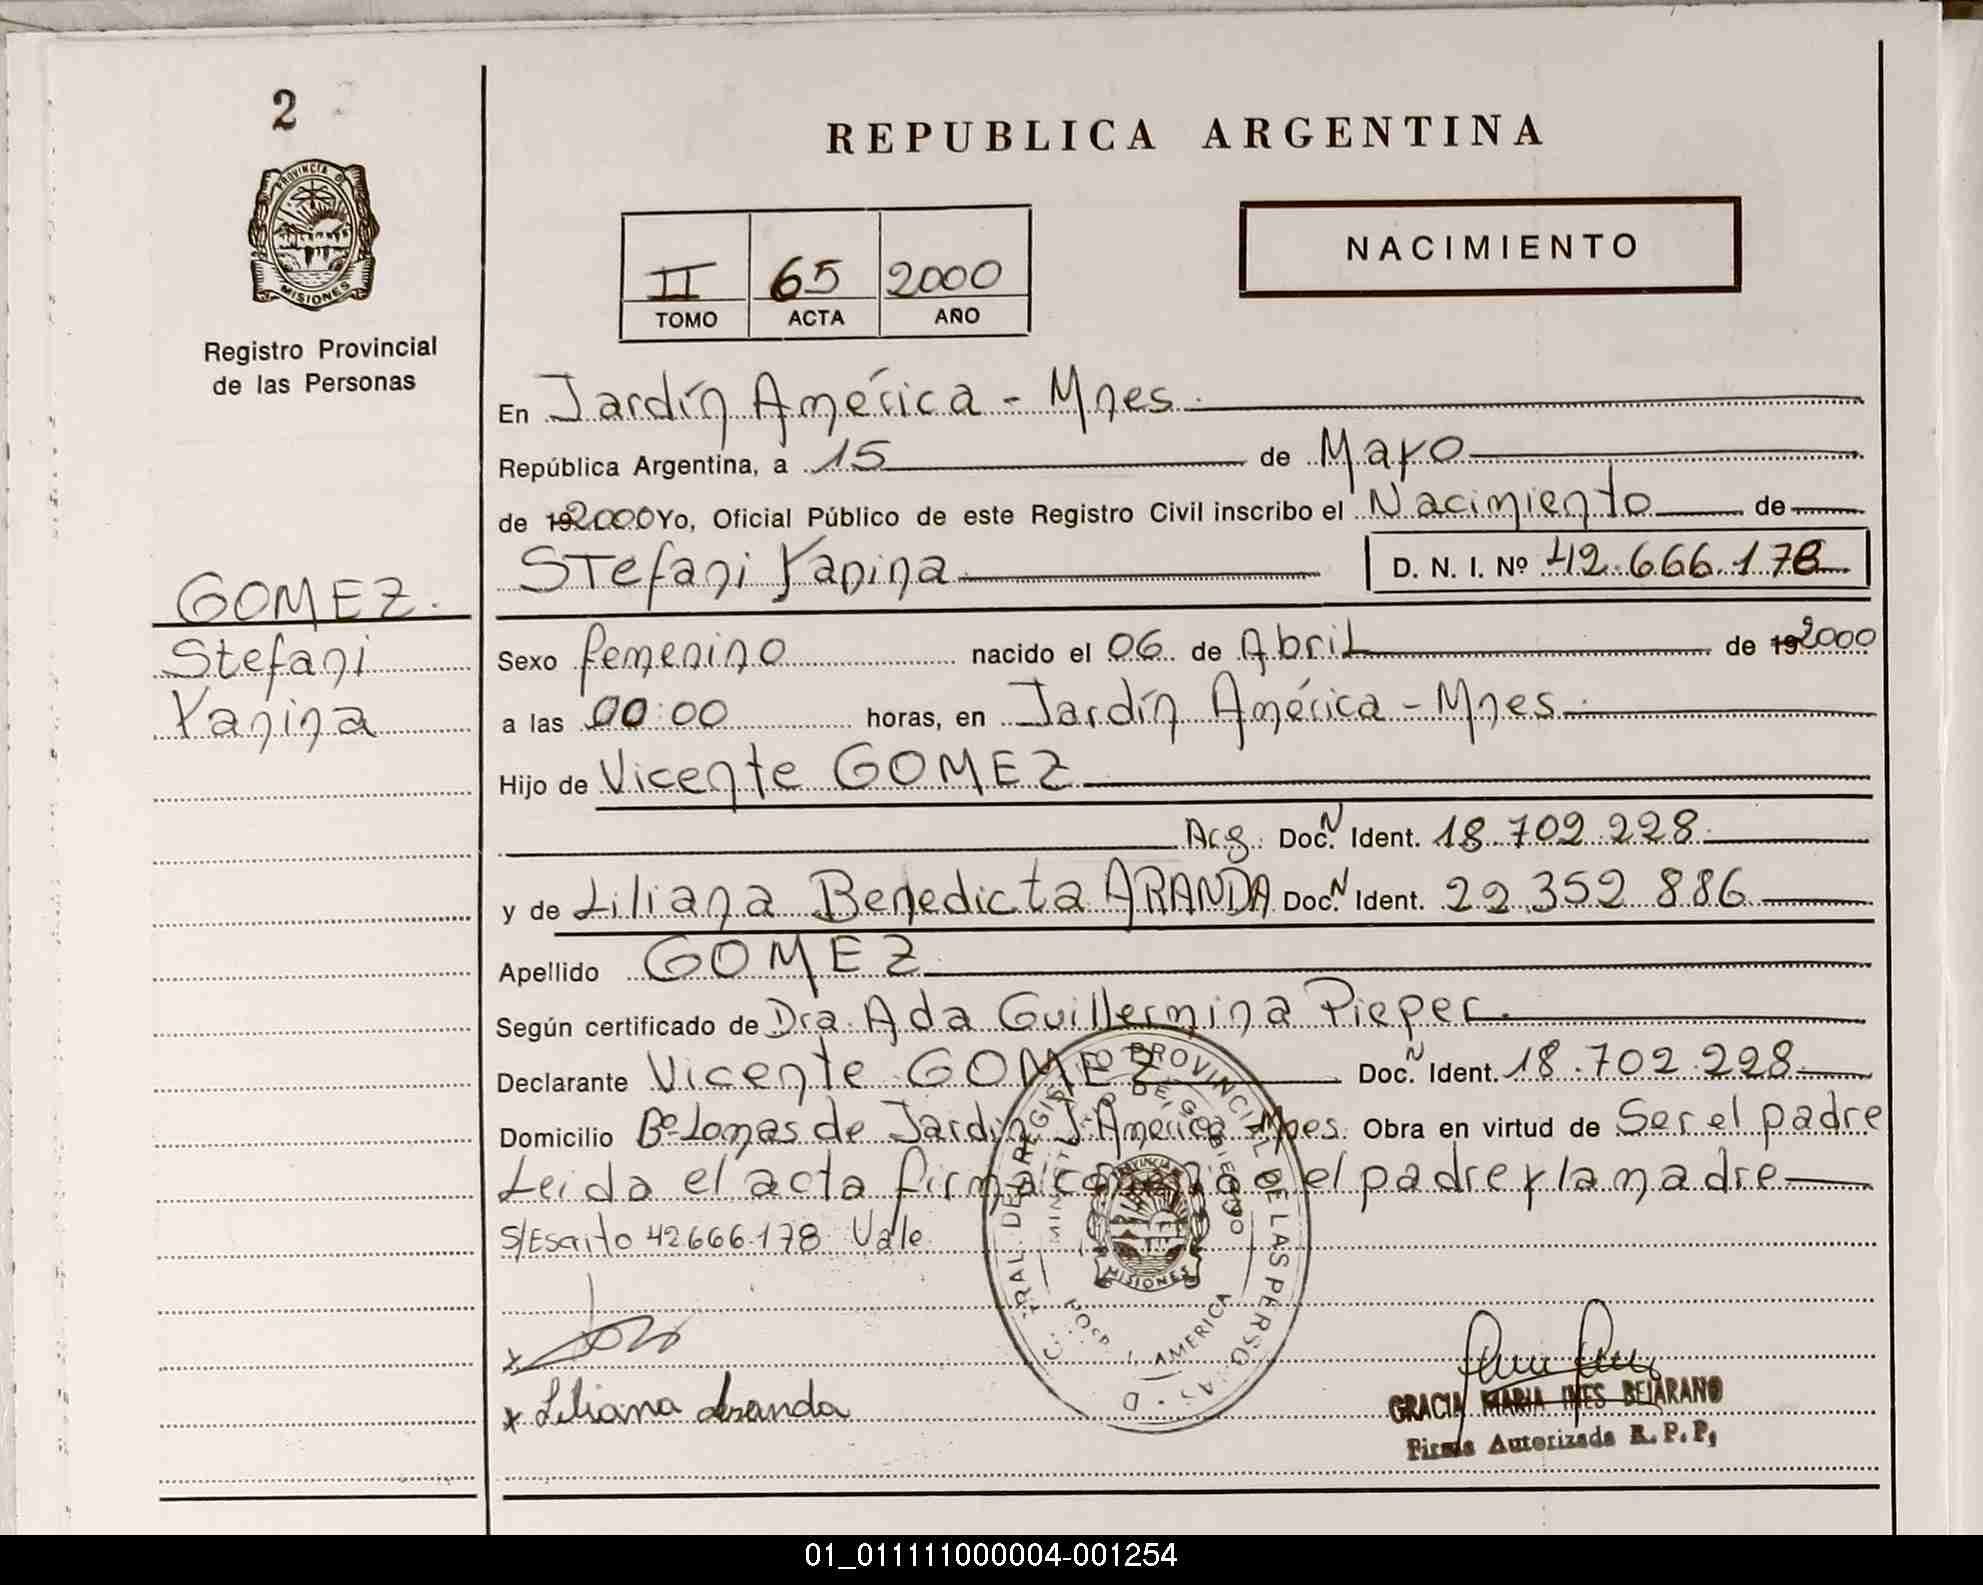 2
REPUBLICA ARGENTINA
PROVINCIA D
MISIONES
NACIMIENTO
II 65 2000
TOMO ACTA AÑO
Registro Provincial
de las Personas
En Jardín América - Mnes.
República Argentina, a 15 de Mayo
de 192000 Yo, Oficial Público de este Registro Civil inscribo el Nacimiento de
Stefani Yanina D. N. I. Nº 42.666.178
GOMEZ.
Stefani
Yanina
Sexo femenino nacido el 06 de Abril de 192000
a las 00:00 horas, en Jardín América - Mnes.
Hijo de Vicente GOMEZ
Arg. Doc. N Ident. 18.702.228
y de Liliana Benedicta ARANDA Doc. N Ident. 22.352.886
Apellido GOMEZ
Según certificado de Dra. Ada Guillermina Pieper.
Declarante Vicente GOMEZ Doc. N Ident. 18.702.228
Domicilio Bº Lomas de Jardín J. América Mnes. Obra en virtud de Ser el padre
Leida el acta firma el padre y la madre
S/Escrito 42.666.178 Vale
REGISTRO PROVINCIAL DE LAS PERSONAS
MINISTERIO DE GOBIERNO
MISIONES
HOSP. J. AMERICA
x Liliana Aranda
GRACIA MARIA INES BEJARANO
Firma Autorizada R. P. P.
01_011111000004-001254